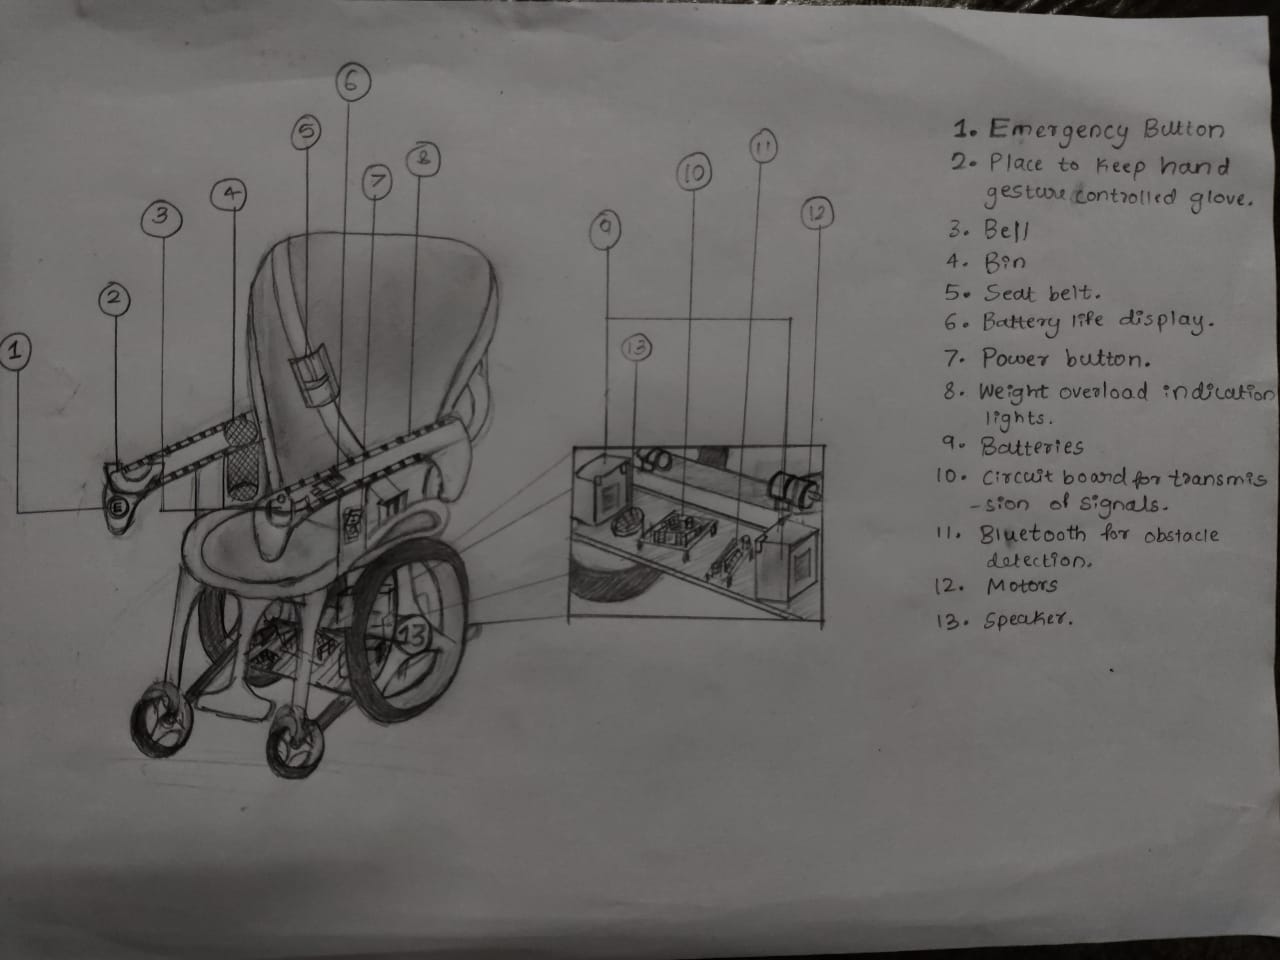 6
5
11
8
10
7
4
12
3
9
2
13
1
E
13
1. Emergency Button
2. Place to keep hand
gesture controlled glove.
3. Bell
4. Bin
5. Seat belt.
6. Battery life display.
7. Power button.
8. Weight overload indication
lights.
9. Batteries
10. Circuit board for transmis
-sion of signals.
11. Bluetooth for obstacle
detection.
12. Motors
13. Speaker.